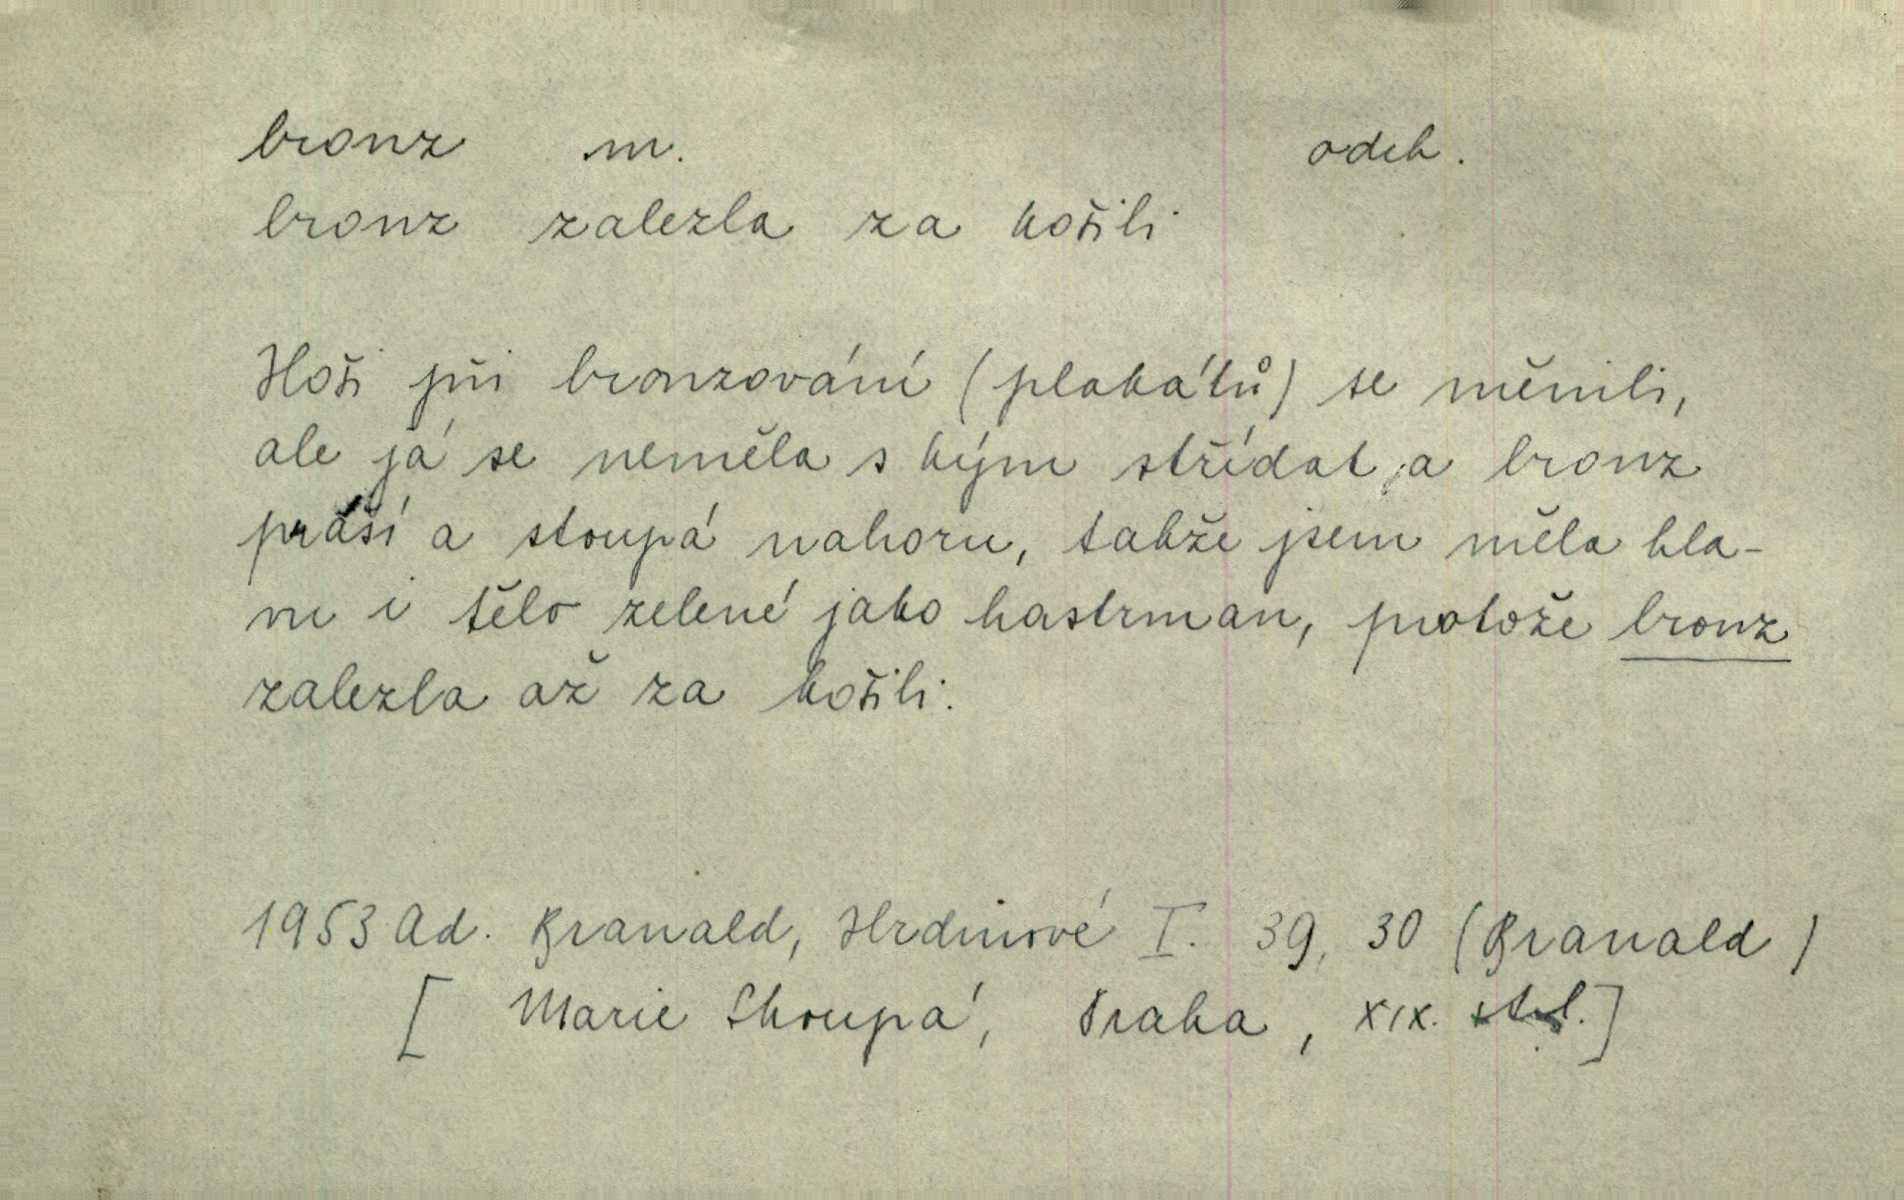 bronz m. odch.
bronz zalezla za košili
Hoši při bronzování (plakátů) se měnili,
ale já se neměla s kým střídat, a bronz
práší a stoupá nahoru, takže jsem měla hla-
vu i tělo zelené jako hastrman, protože bronz
zalezla až za košili.
1953 Ad. Branald, Hrdinové I. 39, 30 (Branald)
[Marie Skoupá, Praha, XIX. stol.]